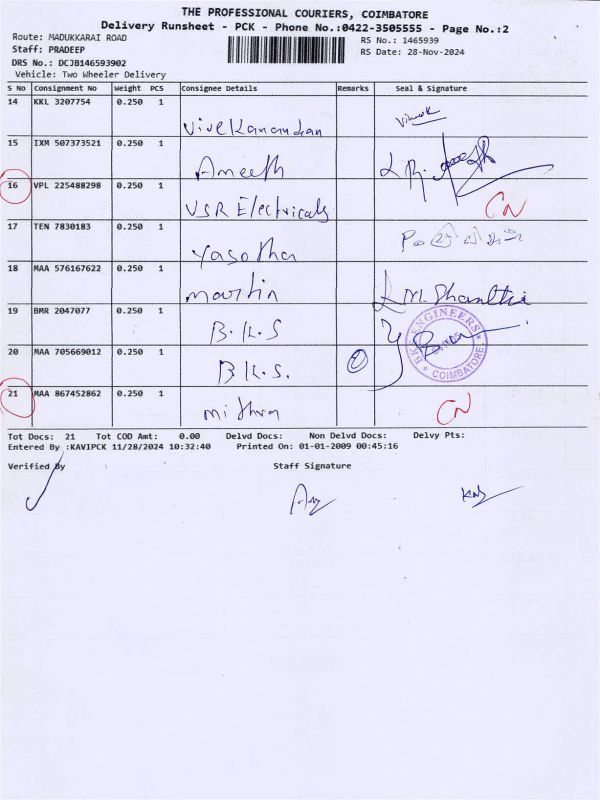 THE PROFESSIONAL COURIERS, COIMBATORE
Delivery Runsheet - PCK - Phone No.:0422-3505555 - Page No.:2
Route: MADUKKARAI ROAD RS No.: 1465939
Staff: PRADEEP RS Date: 28-Nov-2024
DRS No.: DCJB146593902
Vehicle: Two Wheeler Delivery
S No Consignment No Weight PCS Consignee Details Remarks Seal & Signature
14 KKL 3207754 0.250 1 Vivekanandan Vivek
15 IXM 507373521 0.250 1 Ameeth
16 VPL 225488298 0.250 1 VSR Electricals CN
17 TEN 7830183 0.250 1 Yasotha
18 MAA 576167622 0.250 1 Martin M. Shanthi
19 BMR 2047077 0.250 1 B.K.S
20 MAA 705669012 0.250 1 B K.S.
BKS ENGINEERS
COIMBATORE
21 MAA 867452862 0.250 1 Mithra CN
Tot Docs: 21 Tot COD Amt: 0.00 Delvd Docs: Non Delvd Docs: Delvy Pts:
Entered By :KAVIPCK 11/28/2024 10:32:40 Printed On: 01-01-2009 00:45:16
Verified By Staff Signature